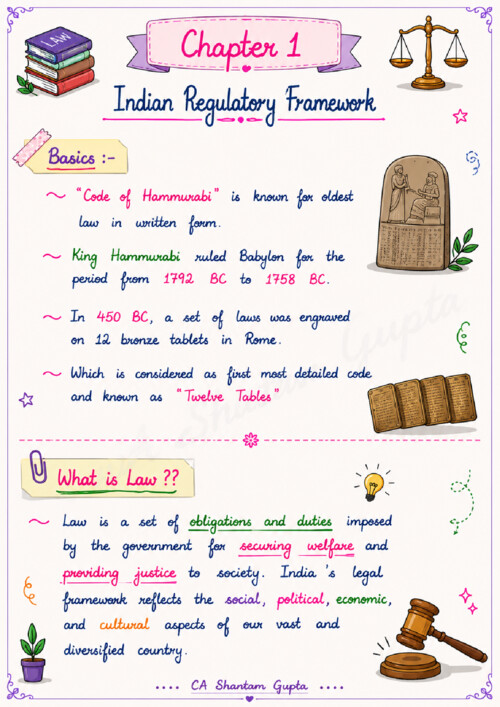 LAW
Chapter 1
Indian Regulatory Framework
Basics :-
~ "Code of Hammurabi" is known for oldest
law in written form.
~ King Hammurabi ruled Babylon for the
period from 1792 BC to 1758 BC.
~ In 450 BC, a set of laws was engraved
on 12 bronze tablets in Rome.
~ Which is considered as first most detailed code
and known as "Twelve Tables"
What is Law ??
~ Law is a set of obligations and duties imposed
by the government for securing welfare and
providing justice to society. India 's legal
framework reflects the social, political, economic,
and cultural aspects of our vast and
diversified country.
.... CA Shantam Gupta ....
CA Shantam Gupta